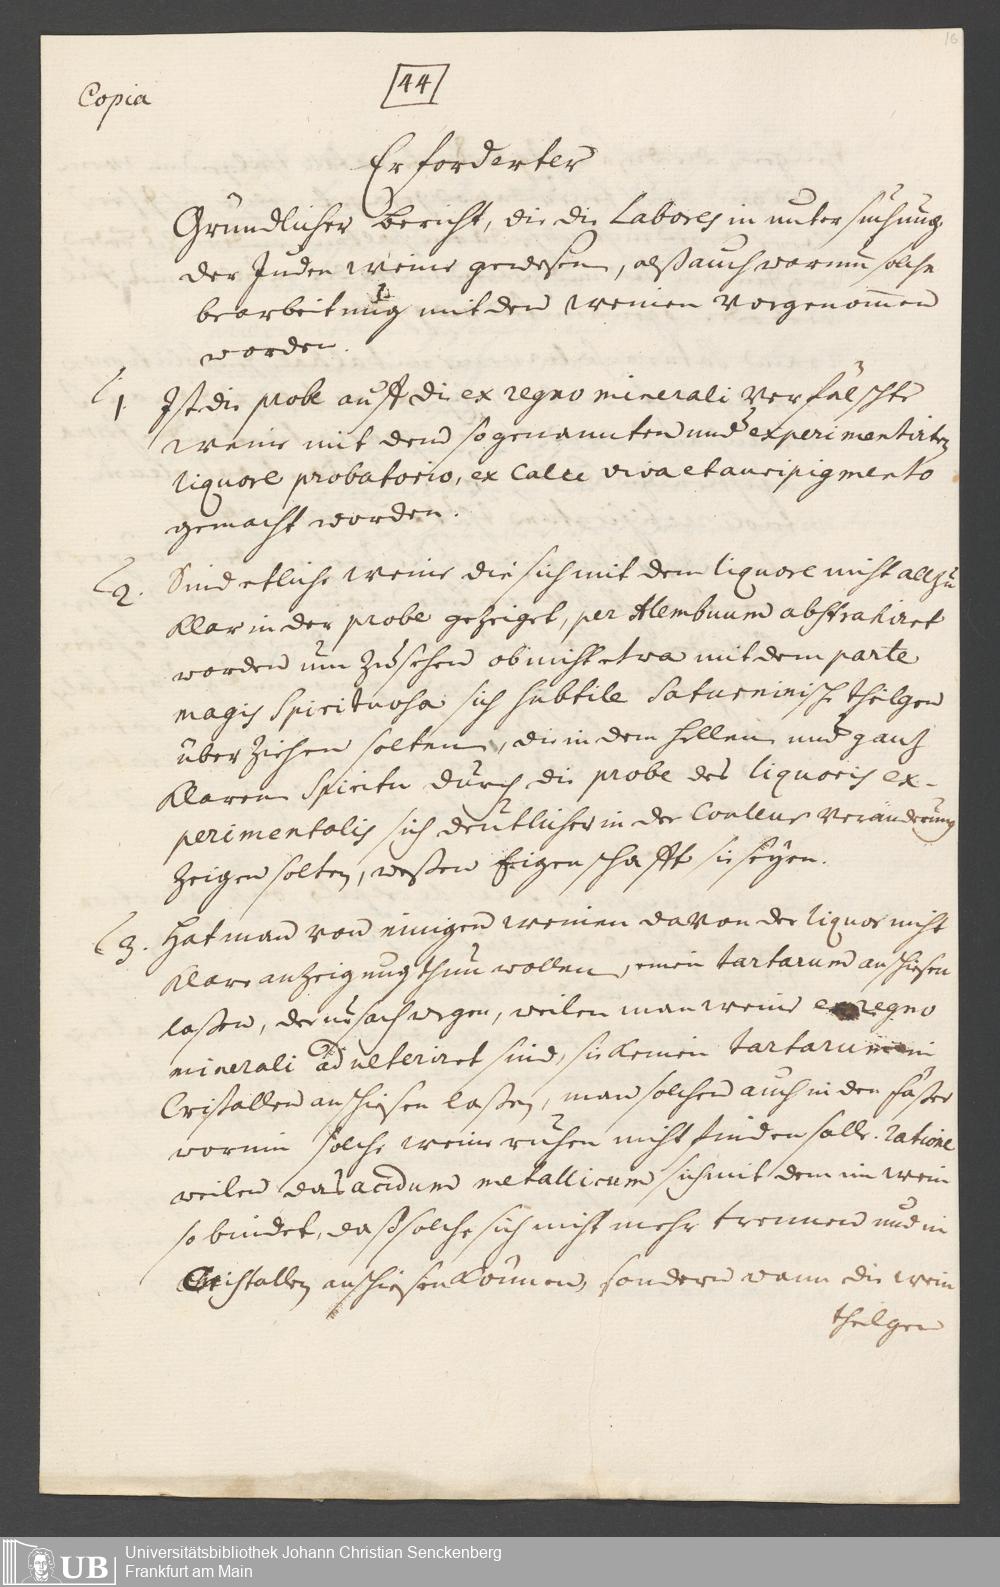 16
44
Copia
Erforderter
Gründlicher bericht, die die Labores in untersuchung
der Juden weine gewesen, alß auch warum solche
bearbeitung mit den weinen vorgenommen
worden.
1. Ist die probe auff die ex regno minerali verfälschte
weine mit dem so genannten und experimentirten
liquore probatorio, ex Calce viva et auripigmento
gemacht worden.
2. Sind etliche weine die sich mit dem liquore nicht allzu
klar in der probe gezeiget, per Alembicum abstrahiret
worden um zu sehen ob nicht etwa mit dem parte
magis Spirituosa sich subtile Saturninische theilgen
über ziehen solten, die in dem hellen und gantz
klaren Spiritu durch die probe des liquoris ex-
perimentalis sich deutlicher in der Couleur veränderung
zeigen solten, weßen Eigenschafft sie seyen.
3. Hat man von einigen weinen davon der liquor nicht
klare anzeigung thun wollen, einen tartarum anschiesen
laßen, der ursach wegen, weilen man weine ex regno
minerali adulteriret sind, sie keinen tartarum in
Cristallen anschiesen laßen, man solchen auch in den faßer
worinn solche weine ruhen nicht finden solle. ratione
weilen das acidum metallicum sich mit dem im wein
so bindet, daß solche sich nicht mehr trennen und in
Cristallen anschiesen können, sondern wann die wein
theilgen
UB
Universitätsbibliothek Johann Christian Senckenberg
Frankfurt am Main